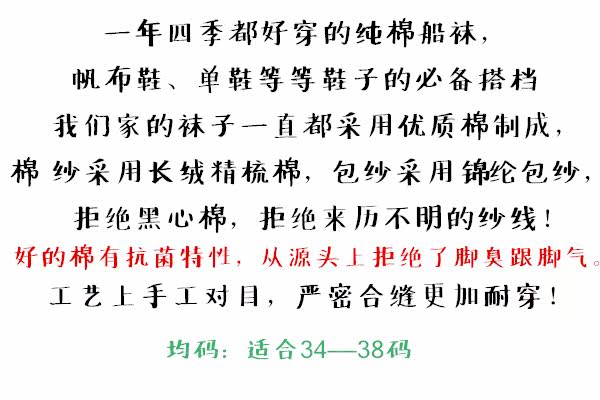 一年四季都好穿的纯棉船袜，
帆布鞋、单鞋等等鞋子的必备搭档
我们家的袜子一直都采用优质棉制成，
棉 纱采用长绒精梳棉，包纱采用锦纶包纱，
拒绝黑心棉，拒绝来历不明的纱线！
好的棉有抗菌特性，从源头上拒绝了脚臭跟脚气。
工艺上手工对目，严密合缝更加耐穿！
均码：适合34—38码